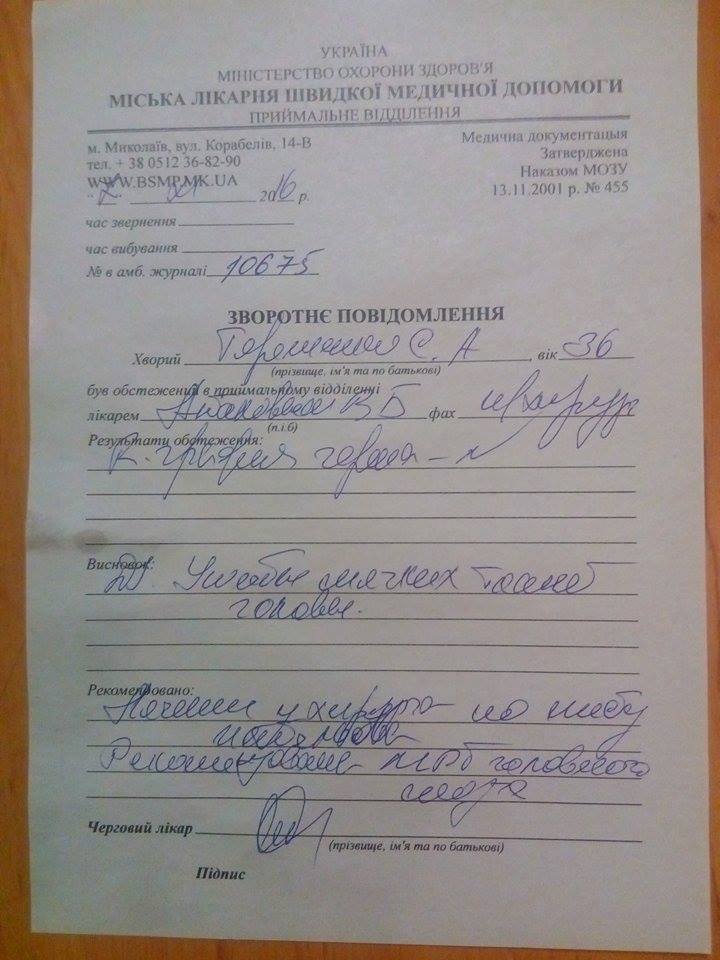 УКРАЇНА
МІНІСТЕРСТВО ОХОРОНИ ЗДОРОВ'Я
МІСЬКА ЛІКАРНЯ ШВИДКОЇ МЕДИЧНОЇ ДОПОМОГИ
ПРИЙМАЛЬНЕ ВІДДІЛЕННЯ
м. Миколаїв, вул. Корабелів, 14-В
тел. + 38 0512 36-82-90
WWW.BSMP.MK.UA
2016 р.
Медична документацыя
Затверджена
Наказом МОЗУ
13.11.2001 р. № 455
час звернення
час вибування
№ в амб. журналі 10675
ЗВОРОТНЄ ПОВІДОМЛЕННЯ
Хворий С. А , вік 36
(прізвище, ім'я та по батькові)
був обстежений в приймальному відділенні
лікарем В Б фах
(п.і.б)
Результати обстеження:
черепа - N
Висновок:
DS. Ушибы мягких тканей
головы.
Рекомендовано:
у хирурга по м/ж
Рекомендовано МРТ головного
мозга
Черговий лікар
(прізвище, ім'я та по батькові)
Підпис